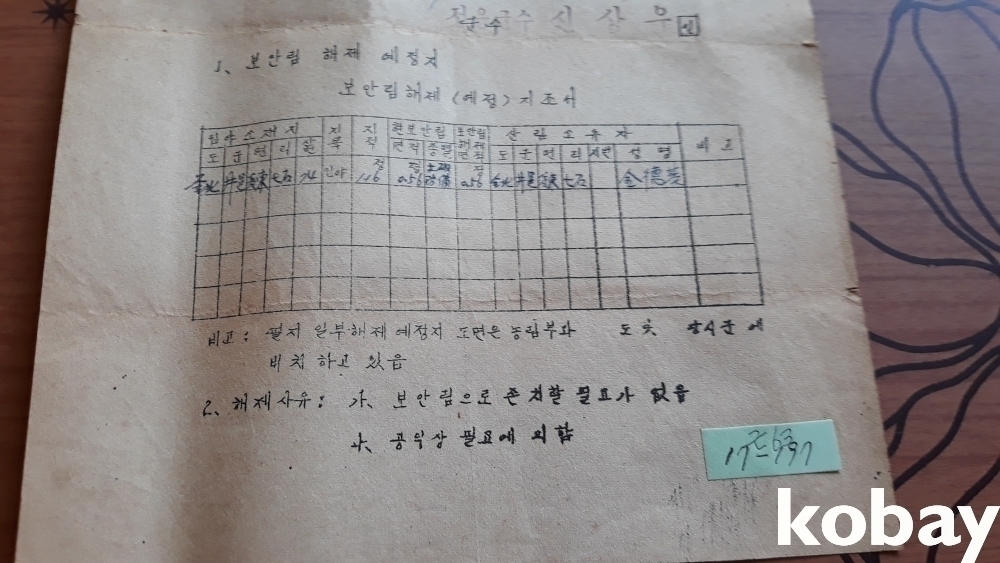 정읍군수 신 상 우
1、 보안림 해제 예정지
보안림해제 (예정) 지조서
임야소재지 지목 지적 현보안림 보안림해제면적 산림소유자 비고
도 군 면 리 지번 면적 종별 도 군 면 리 지번 성명
全北 井邑 七石 24 임야 정 116 정 056 정 056 全北 井邑 七石
비고: 필지 일부해제 예정지 도면은 농림부와 도 및 당시군에
비치하고 있음
2、 해제사유: 가、 보안림으로 존치할 필요가 없음
나、 공익상 필요에 의함
kobay